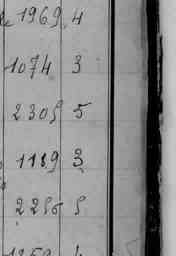 1969 4
1074 3
2305 5
1119 3
2256 5